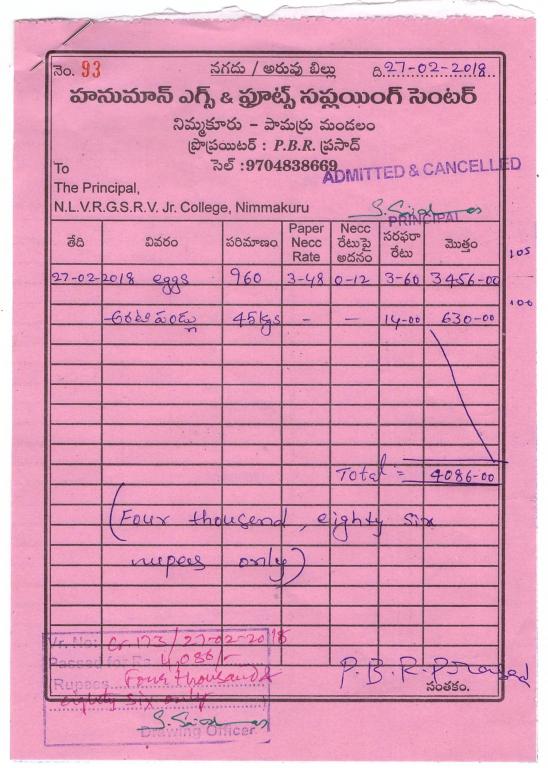 నెం. 93 నగదు / అరువు బిల్లు ది. 27-02-2018
హనుమాన్ ఎగ్స్ & ఫ్రూట్స్ సప్లయింగ్ సెంటర్
నిమ్మకూరు - పామర్రు మండలం
ప్రొప్రయిటర్ : P.B.R. ప్రసాద్
సెల్ : 9704838669
ADMITTED & CANCELLED
To
The Principal,
N.L.V.R.G.S.R.V. Jr. College, Nimmakuru
PRINCIPAL
తేది వివరం పరిమాణం Paper Necc Rate Necc రేటుపై అదనం సరఫరా రేటు మొత్తం
105
27-02-2018 eggs 960 3-48 0-12 3-60 3456-00
100
అరటి పండ్లు 45kgs - - 14-00 630-00
Total = 4086-00
(Four thousand, eighty six
rupees only)
Vr. No: Cr 173/27-02-2018
Passed for Rs. 4,086/-
Rupees Four thousand &
eighty six only
P. B. R. Prasad
సంతకం.
Drawing Officer